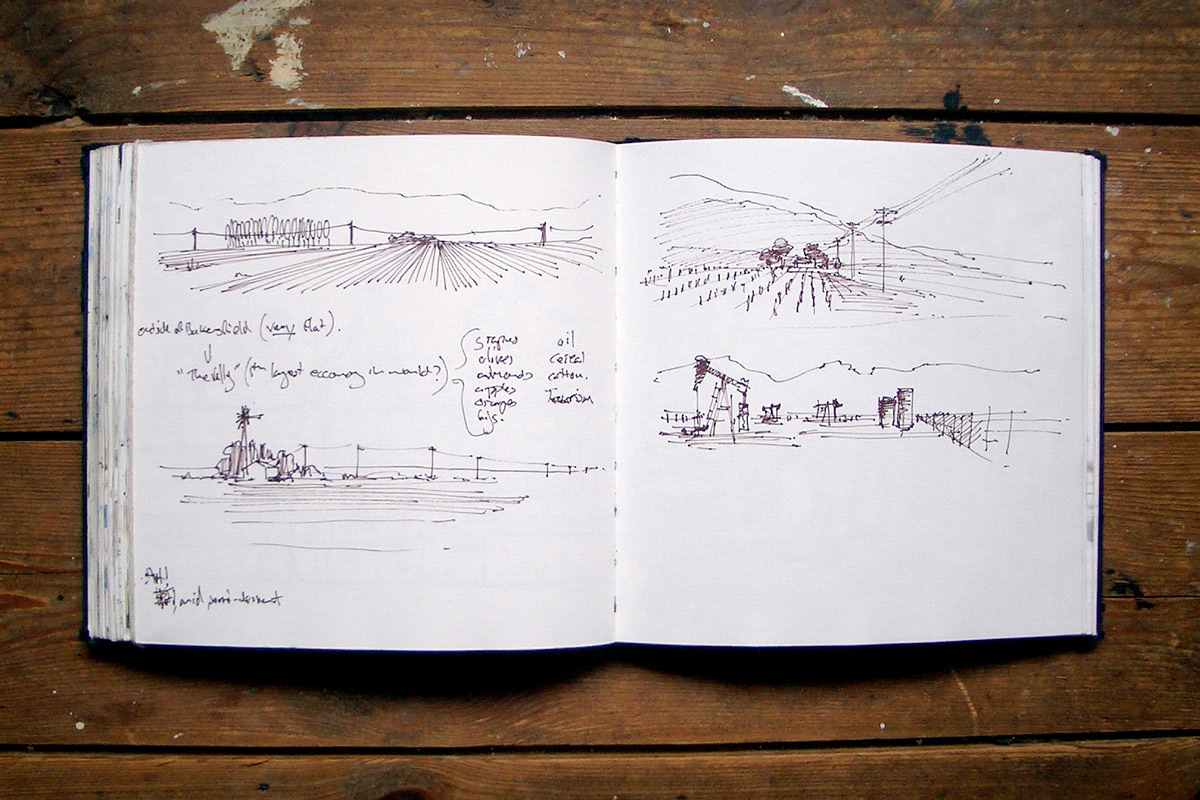 outside of Bakersfield (very flat).
"The Vally" (5th largest economy in world?)
grapes
olives
almonds
apples
oranges
figs.
oil
cereal
cotton.
Tourism
arid semi-desert